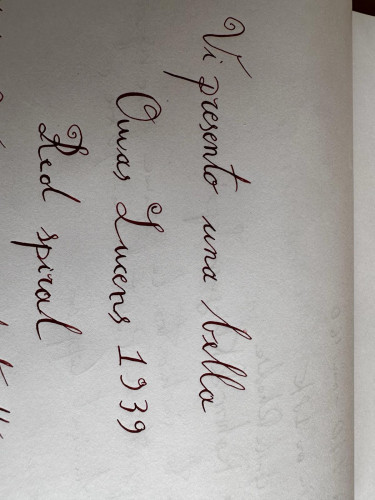 Vi presento una bella
Omas Lucens 1939
Red spiral